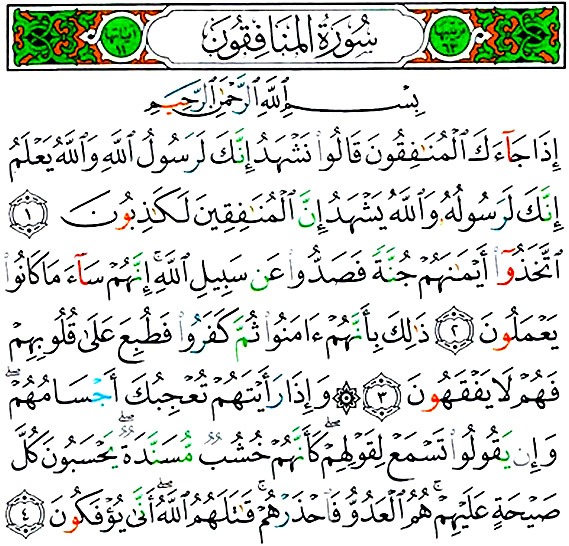 سُورَةُ المُنَافِقُونَ
بِسْمِ ٱللَّهِ ٱلرَّحْمَٰنِ ٱلرَّحِيمِ
إِذَا جَآءَكَ ٱلْمُنَٰفِقُونَ قَالُوا۟ نَشْهَدُ إِنَّكَ لَرَسُولُ ٱللَّهِ وَٱللَّهُ يَعْلَمُ
إِنَّكَ لَرَسُولُهُۥ وَٱللَّهُ يَشْهَدُ إِنَّ ٱلْمُنَٰفِقِينَ لَكَٰذِبُونَ ١
ٱتَّخَذُوٓا۟ أَيْمَٰنَهُمْ جُنَّةً فَصَدُّوا۟ عَن سَبِيلِ ٱللَّهِ ۚ إِنَّهُمْ سَآءَ مَا كَانُوا۟
يَعْمَلُونَ ٢ ذَٰلِكَ بِأَنَّهُمْ ءَامَنُوا۟ ثُمَّ كَفَرُوا۟ فَطُبِعَ عَلَىٰ قُلُوبِهِمْ
فَهُمْ لَا يَفْقَهُونَ ٣ ۞ وَإِذَا رَأَيْتَهُمْ تُعْجِبُكَ أَجْسَامُهُمْ ۖ
وَإِن يَقُولُوا۟ تَسْمَعْ لِقَوْلِهِمْ ۖ كَأَنَّهُمْ خُشُبٌ مُّسَنَّدَةٌ ۖ يَحْسَبُونَ كُلَّ
صَيْحَةٍ عَلَيْهِمْ ۚ هُمُ ٱلْعَدُوُّ فَٱحْذَرْهُمْ ۚ قَٰتَلَهُمُ ٱللَّهُ ۖ أَنَّىٰ يُؤْفَكُونَ ٤